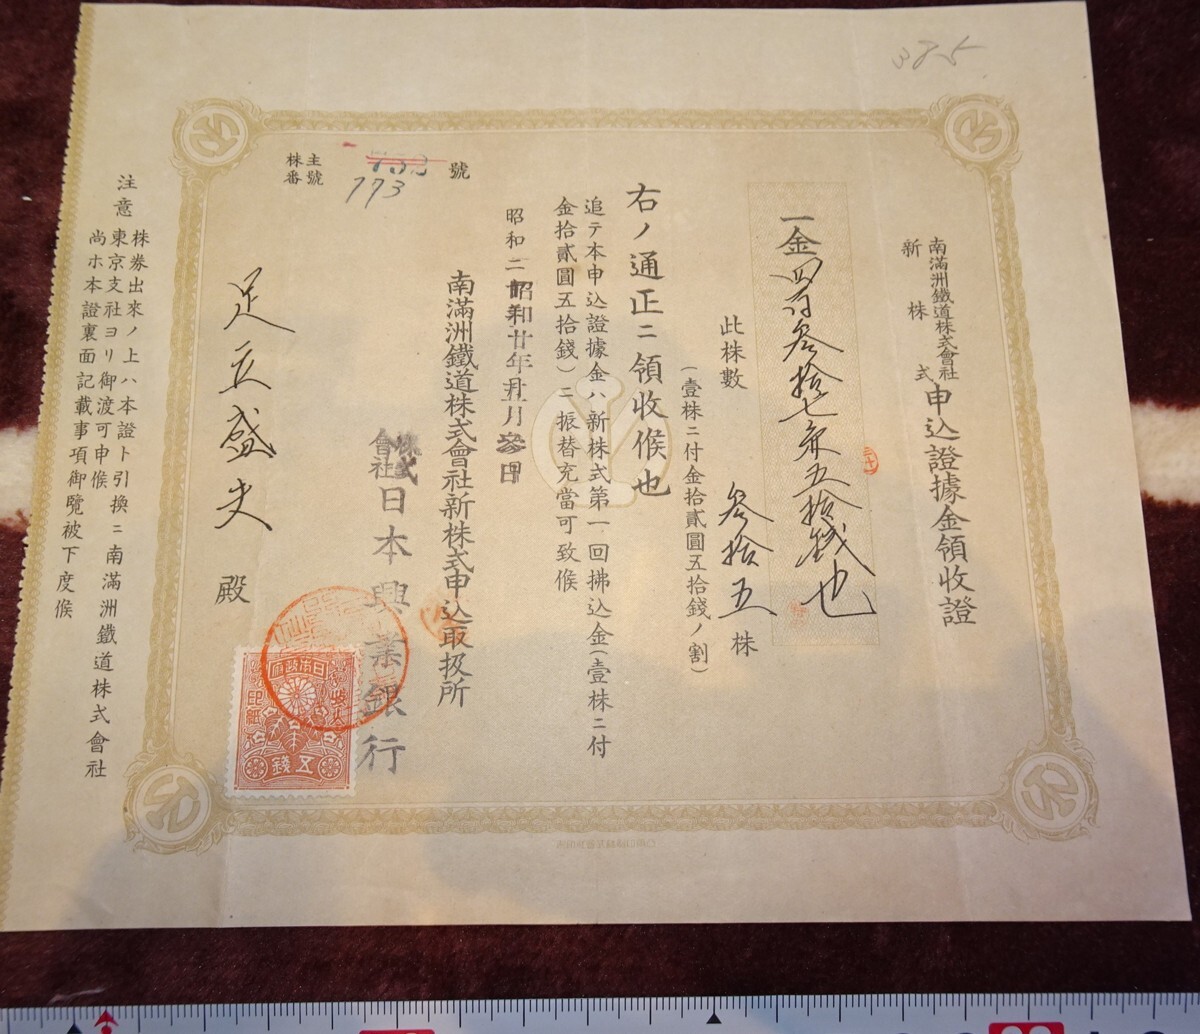 385
南滿洲鐵道株式會社
新株式
申込證據金領收證
一金四百叄拾七円五拾錢也
此株數 叄拾五株
(壹株ニ付金拾貳圓五拾錢ノ割)
右ノ通正ニ領收候也
追テ本申込證據金ハ新株式第一回拂込金(壹株ニ付
金拾貳圓五拾錢)ニ振替充當可致候
昭和二十
昭和廿年
月
日
南滿洲鐵道株式會社新株式申込取扱所
株式會社日本興業銀行
株主番號
號
773
足立盛夫殿
日本政府
收入印紙
五錢
注意
株券出來ノ上ハ本證ト引換ニ南滿洲鐵道株式會社
東京支社ヨリ御渡可申候
尚ホ本證裏面記載事項御覽被下度候